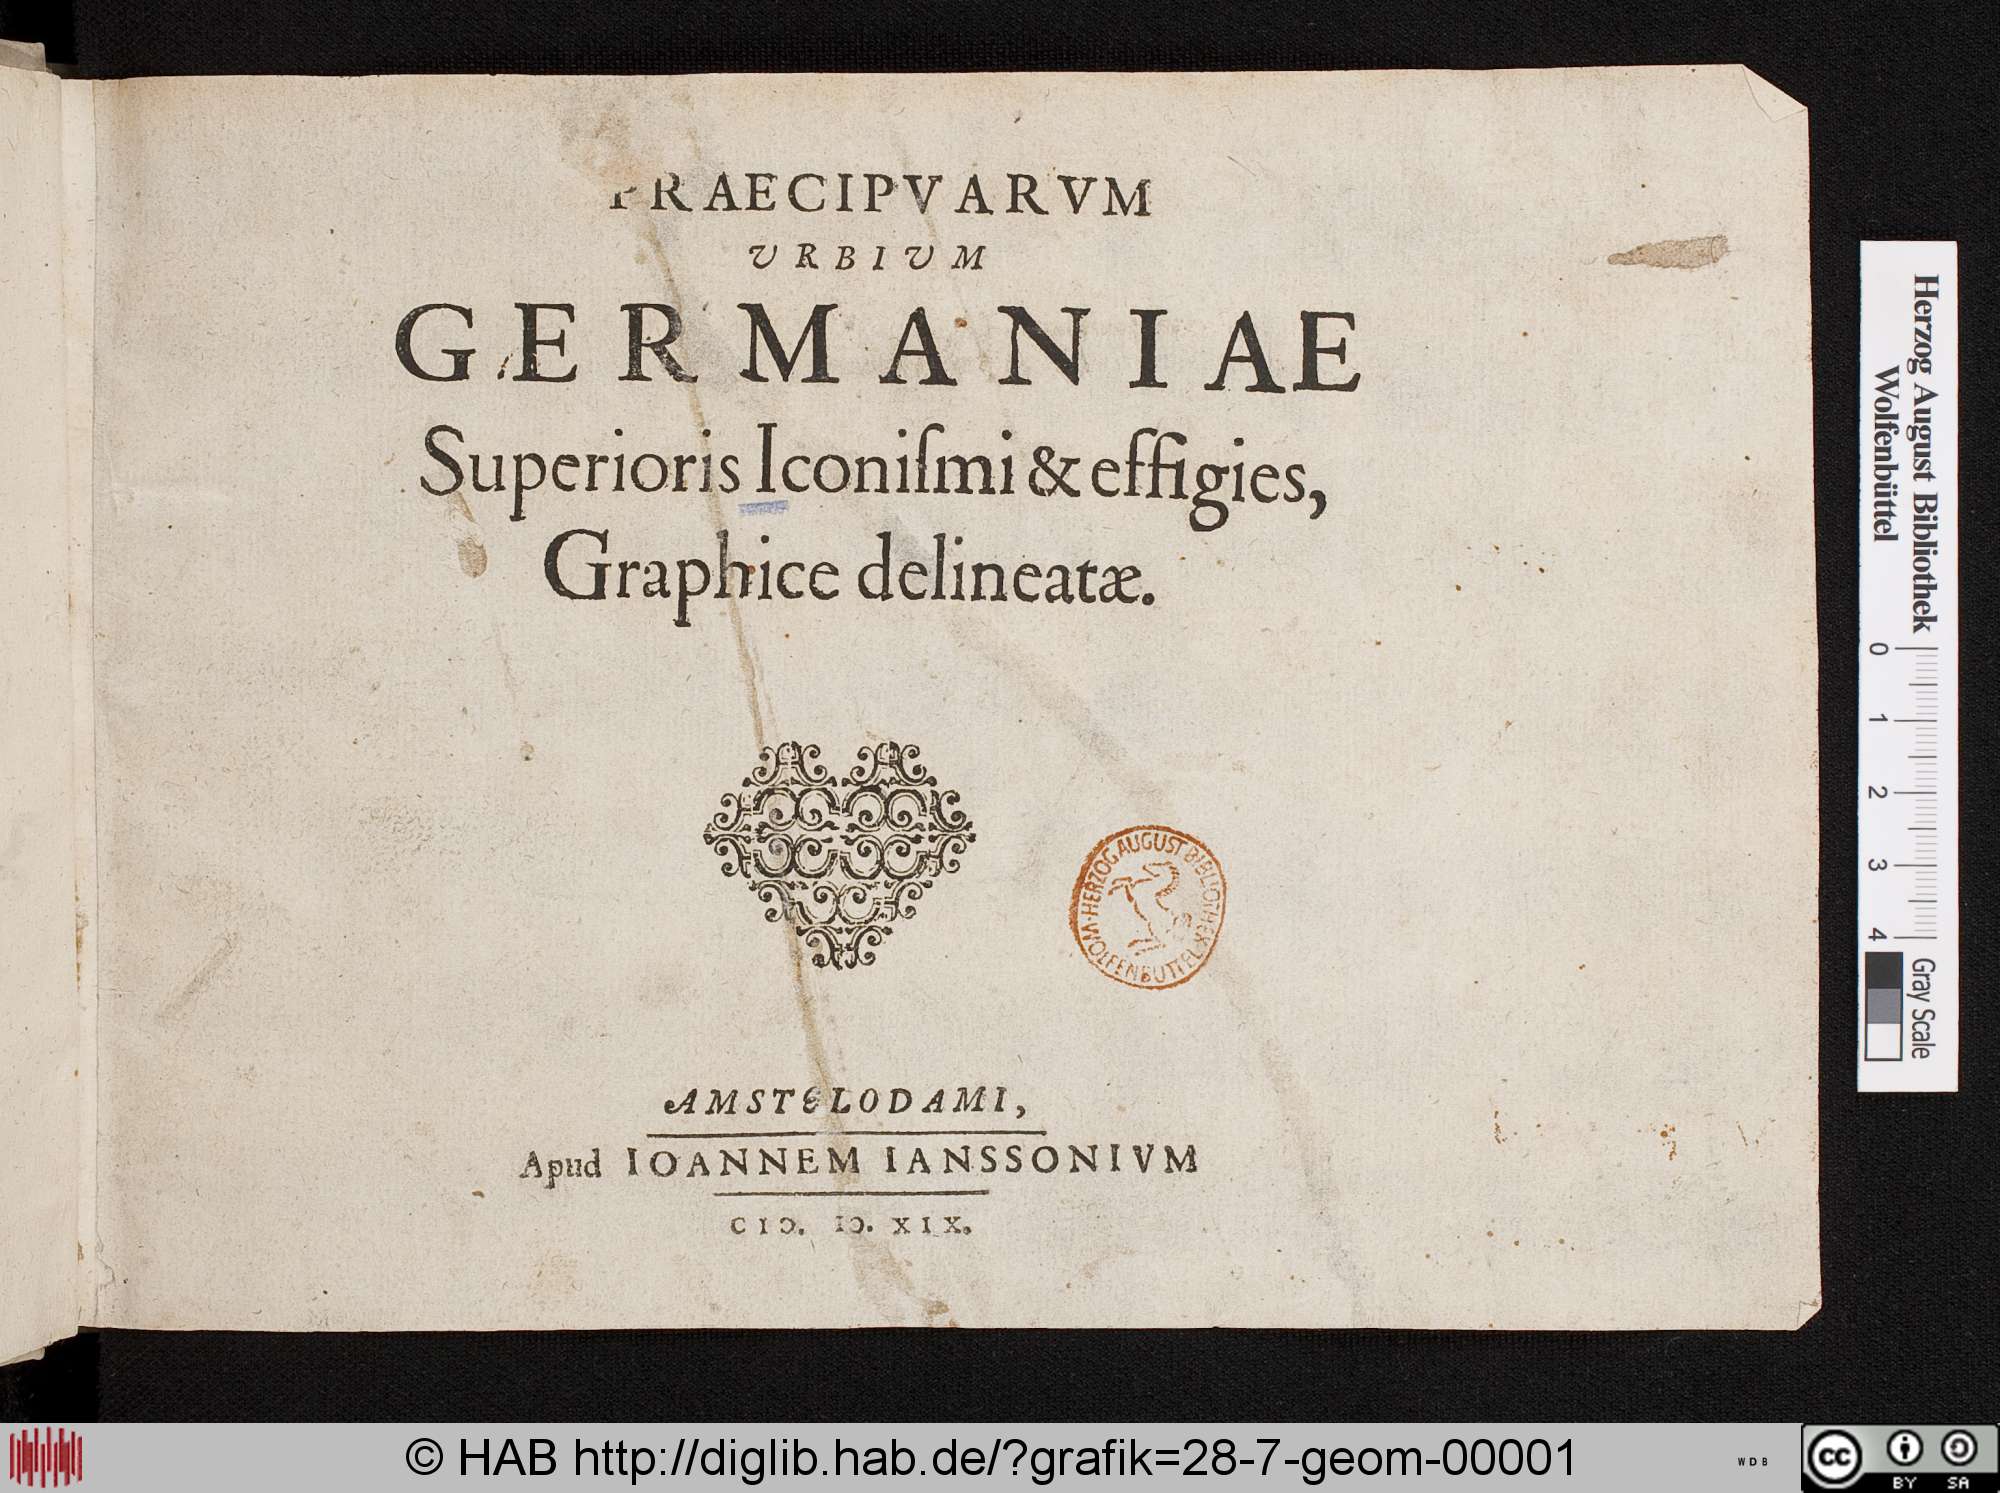 PRAECIPVARVM
URBIUM
GERMANIAE
Superioris Iconiſmi & effigies,
Graphice delineatæ.
HERZOG AUGUST BIBLIOTHEK · WOLFENBÜTTEL ·
AMSTELODAMI,
Apud IOANNEM IANSSONIVM
CIↃ. IↃ. XIX.
Herzog August Bibliothek
Wolfenbüttel
0 1 2 3 4
Gray Scale
© HAB http://diglib.hab.de/?grafik=28-7-geom-00001
WDB
cc BY SA